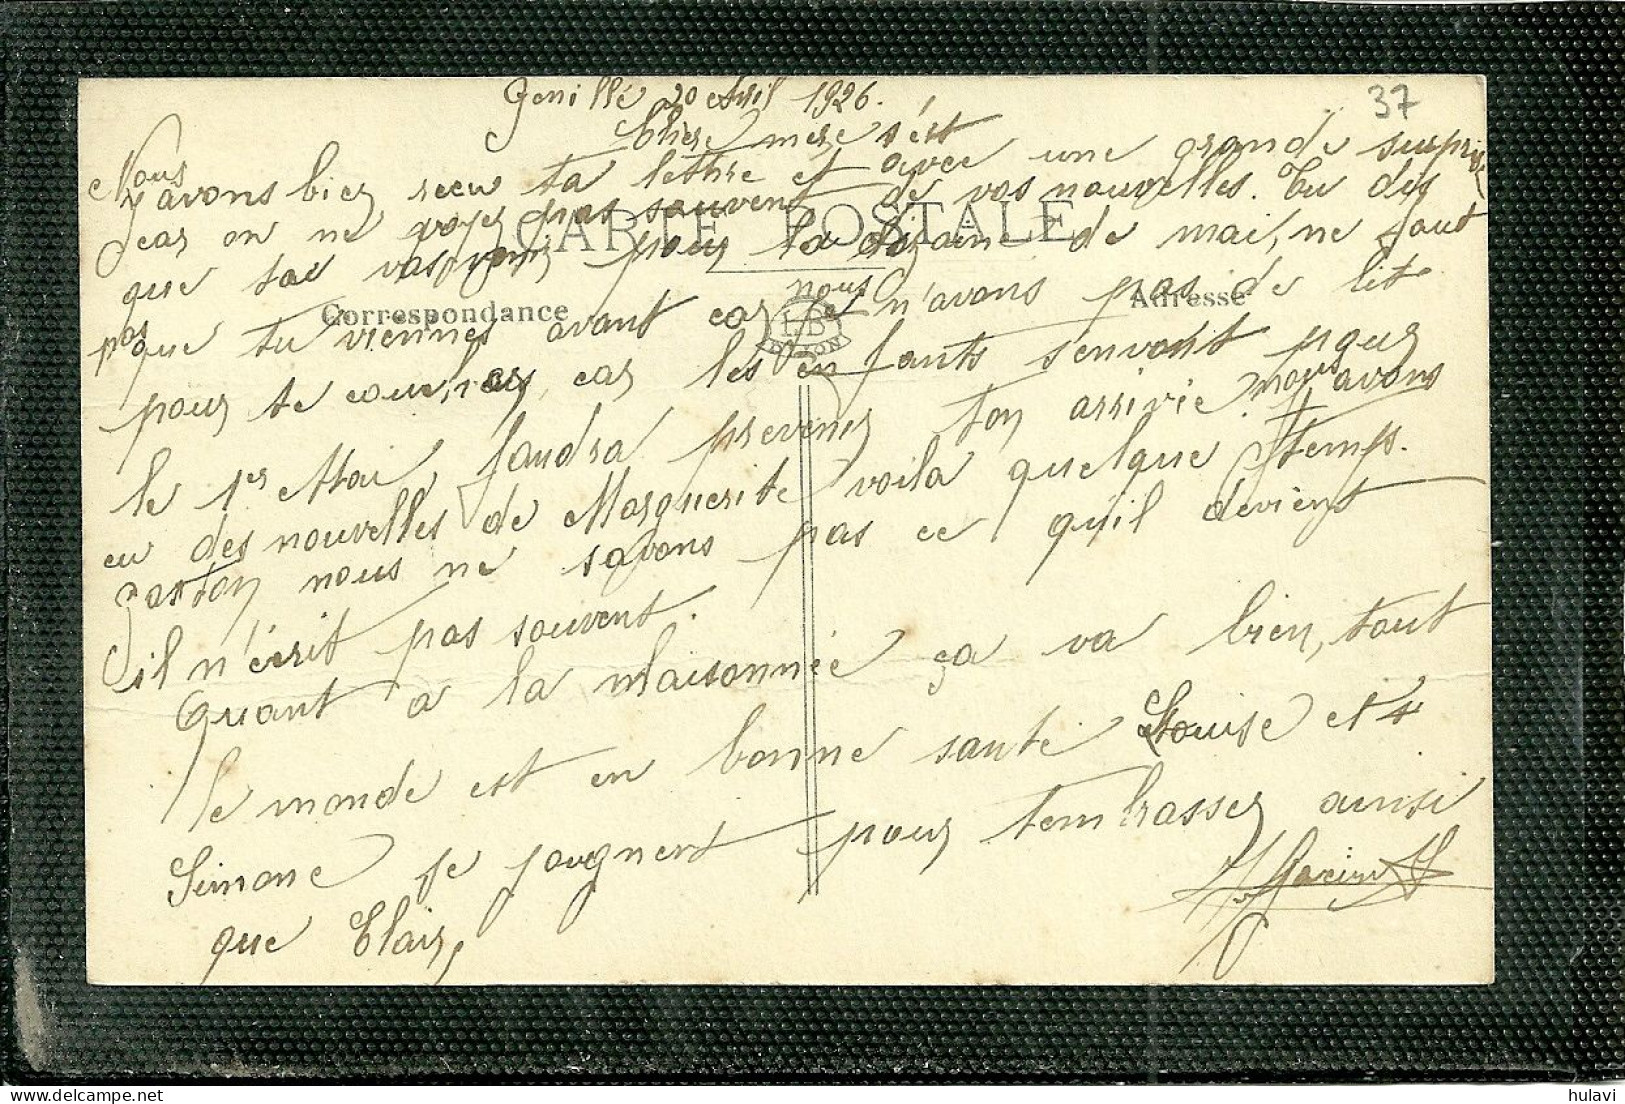 Genillé 20 Avril 1926.
37
Chère mère c'est
Nous avons bien reçu ta lettre et avec une grande surprise
car on ne voyer pas souvent de vos nouvelles. Tu dis
CARTE POSTALE
que tu vas venir pour la dizaine de mai, ne faut
Correspondance
Adresse
L B
DIJON
pas que tu viennes avant car nous n'avons pas de lit
pour te coucher, car les enfants s'envont pour
le 1er Mai, faudra prevenir ton arrivie. nous avons
eu des nouvelles de Marguerite voila quelque temps.
Gaston nous ne savons pas ce qu'il devient
il n'écrit pas souvent.
Quant a la maisonnée ça va bien, tout
le monde est en bonne santé Louise et
Simone se joignent pour t'embrasser ainsi
que Clair,
hulavi